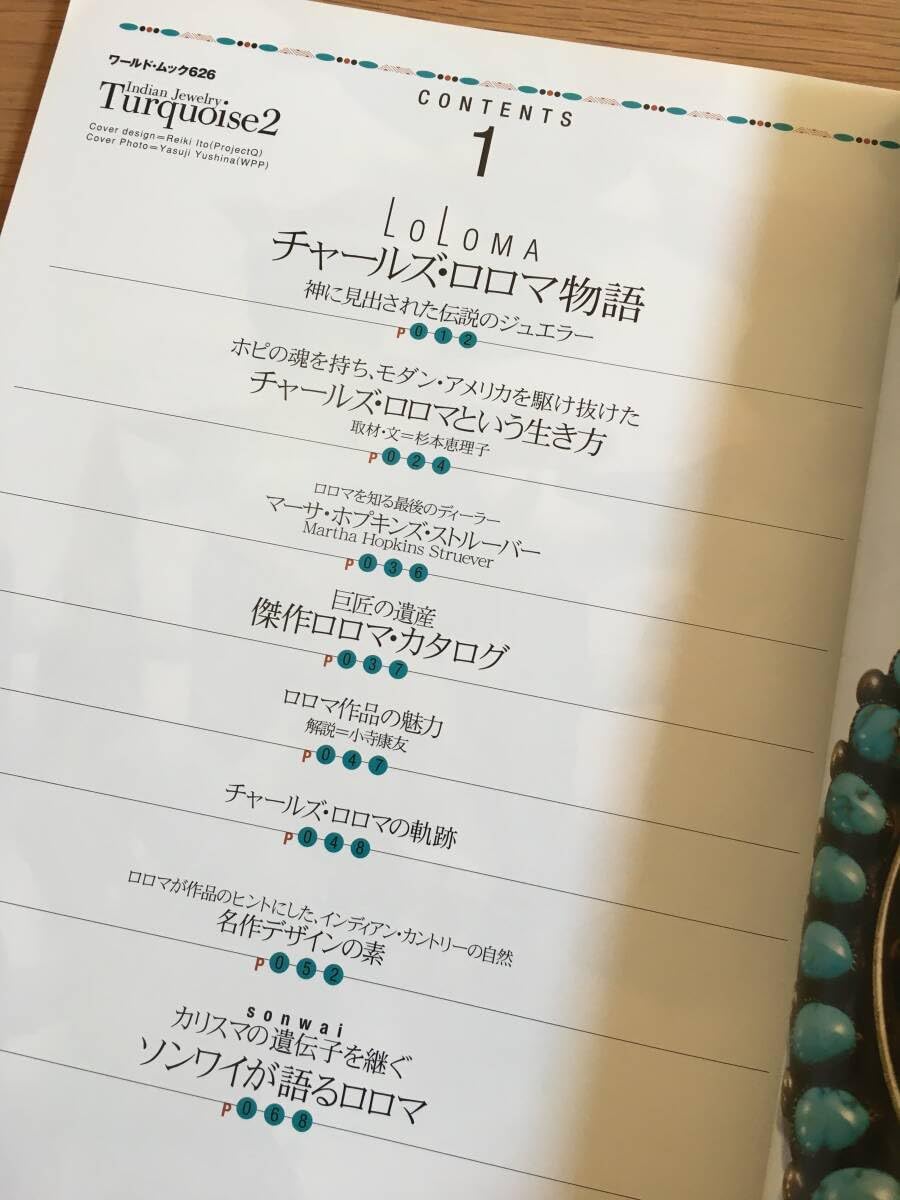 ワールド・ムック626
Indian Jewelry
Turquoise2
Cover design＝Reiki Ito(ProjectQ)
Cover Photo＝Yasuji Yushina(WPP)
CONTENTS
1
LOLOMA
チャールズ・ロロマ物語
神に見出された伝説のジュエラー
P012
ホピの魂を持ち、モダン・アメリカを駆け抜けた
チャールズ・ロロマという生き方
取材・文＝杉本恵理子
P024
ロロマを知る最後のディーラー
マーサ・ホプキンズ・ストルーバー
Martha Hopkins Struever
P036
巨匠の遺産
傑作ロロマ・カタログ
P037
ロロマ作品の魅力
解説＝小寺康友
P047
チャールズ・ロロマの軌跡
P048
ロロマが作品のヒントにした、インディアン・カントリーの自然
名作デザインの素
P052
sonwai
カリスマの遺伝子を継ぐ
ソンワイが語るロロマ
P068